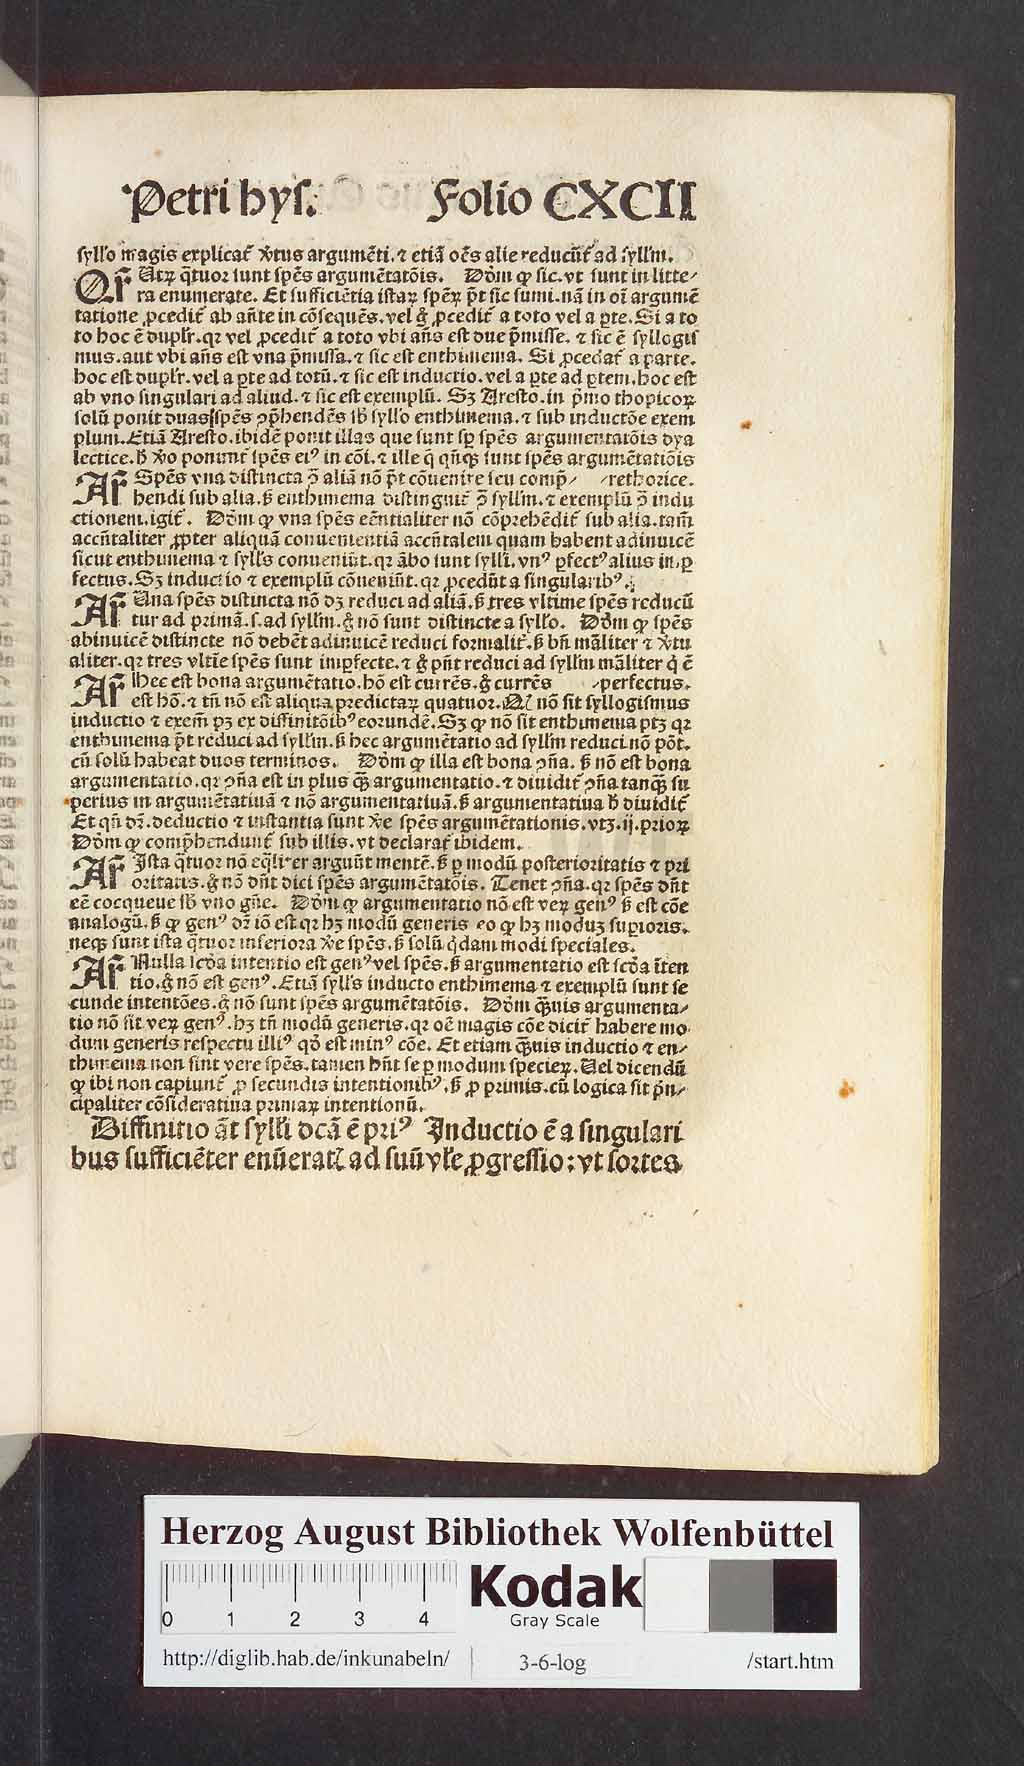 Petri hys. Folio CXCII
syllo magis explicat᷑ v̓tus argumēti. ⁊ etiā oēs alie reducūt᷑ ad syllm̄.
Qr̄ Utrꝝ q̄tuor sunt spēs argumētatōis. Dōm ꝙ sic. vt sunt in litte⸗
ra enumerate. Et sufficiētia istaꝝ spēꝝ p̄t sic sumi. nā in oī argumē
tatione ꝓcedit᷑ ab an̄te in cōsequēs. vel g̊ ꝓcedit᷑ a toto vel a ꝑte. Si a to
to hoc ē duplr̄. qr vel ꝓcedit᷑ a toto vbi an̄s est due p̄misse. ⁊ sic ē syllogis
mus. aut vbi an̄s est vna p̄missa. ⁊ sic est enthimema. Si ꝓcedat᷑ a parte.
hoc est duplr̄. vel a ꝑte ad totū. ⁊ sic est inductio. vel a ꝑte ad ꝑtem. hoc est
ab vno singulari ad aliud. ⁊ sic est exemplū. Sꝫ Aresto. in p̄mo thopicoꝝ
solū ponit duas spēs ꝯp̄hendēs sb̄ syllo enthimema. ⁊ sub inductōe exem
plum. Etiā Aresto. ibidē ponit illas que sunt sp̄ spēs argumentatōis dya
lectice. h̄ v̓o ponunt᷑ spēs eiꝰ in cōi. ⁊ ille q̄ qn̄qꝫ sunt spēs argumētatiōis
Ar̄ Spēs vna distincta ꝯ̄ aliā nō p̄t cōuenire seu comp̄⸗ ⸗rethorice.
hendi sub alia. ß enthimema distinguit᷑ ꝯ̄ syllm̄. ⁊ exemplū ꝯ̄ indu
ctionem. igit᷑. Dōm ꝙ vna spēs eēntialiter nō cōprehēdit᷑ sub alia. tam̄
accn̄taliter ꝓpter aliquā conuenientiā accn̄talem quam habent adinuicē
sicut enthimema ⁊ sylls̄ conueniūt. qr ābo sunt sylli. vnꝰ ꝑfectꝰ alius imꝑ
fectus. Sꝫ inductio ⁊ exemplū cōueniūt. qr ꝓcedūt a singularibꝰ.
Ar̄ Una spēs distincta nō dꝫ reduci ad aliā. ß tres vltime spēs reducū
tur ad primā. s. ad syllm̄. g̊ nō sunt distincte a syllo. Dōm ꝙ spēs
abinuicē distincte nō debēt adinuicē reduci formalit᷑. ß bn̄ māliter ⁊ v̓tu
aliter. qr tres vltīe spēs sunt imꝑfecte. ⁊ g̊ pn̄t reduci ad syllm̄ māliter q̇ ē
Ar̄ Hec est bona argumētatio. hō est currēs. g̊ currēs ⸗perfectus.
est hō. ⁊ tn̄ nō est aliqua predictaꝝ quatuor. Nā nō sit syllogismus
inductio ⁊ exem̄ pꝫ ex diffinitōibꝰ eorundē. Sꝫ ꝙ nō sit enthimema ptꝫ qr
enthimema p̄t reduci ad syllm̄. ß hec argumētatio ad syllm̄ reduci nō pōt.
cū solū habeat duos terminos. Dōm ꝙ illa est bona ꝯn̄a. ß nō est bona
argumentatio. qr ꝯn̄a est in plus qᷓꝫ argumentatio. ⁊ diuidit᷑ ꝯn̄a tanqᷓꝫ su
perius in argumētatiuā ⁊ nō argumentatiuā. ß argumentatiua h̄ diuidit᷑
Et qn̄ dr̄. deductio ⁊ instantia sunt v̓e spēs argumētationis. vtꝫ. ij. prioꝝ
Dōm ꝙ comp̄hendunt᷑ sub illis. vt declarat᷑ ibidem.
Ar̄ Ista q̄tuor nō eq̄liter arguūt mentē. ß ꝑ modū posterioritatis ⁊ pri
oritatis. g̊ nō dn̄t dici spēs argumētatōis. Tenet ꝯn̄a. qr spēs dn̄t
eē coequeue sb̄ vno gn̄e. Dōm ꝙ argumentatio nō est veꝝ genꝰ ß est cōe
analogū. ß ꝙ genꝰ dr̄ iō est qr hꝫ modū generis eo ꝙ hꝫ moduꝫ suꝑioris.
neqꝫ sunt ista q̄tuor inferiora v̓e spēs. ß solū q̇dam modi speciales.
Ar̄ Nulla scd̓a intentio est genꝰ vel spēs. ß argumentatio est scd̓a īten
tio. g̊ nō est genꝰ. Etiā sylls̄ inducto enthimema ⁊ exemplū sunt se
cunde intentōes. g̊ nō sunt spēs argumētatōis. Dōm qᷓꝫuis argumenta⸗
tio nō sit veꝝ genꝰ. hꝫ tn̄ modū generis. qr oē magis cōe dicit᷑ habere mo⸗
dum generis respectu illiꝰ qd̓ est minꝰ cōe. Et etiam qᷓꝫuis inductio ⁊ en⸗
thimema non sint vere spēs. tamen hn̄t se ꝑ modum specieꝝ. Uel dicendū
ꝙ ibi non capiunt᷑ ꝓ secundis intentionibꝰ. ß ꝓ primis. cū logica sit p̄n⸗
cipaliter cōsideratiua primaꝝ intentionū.
Diffinitio āt sylli dcā ē priꝰ Inductio ē a singulari
bus sufficiēter enūeratꝭ ad suū vl̄e ꝓgressio: vt sortes
Herzog August Bibliothek Wolfenbüttel
0 1 2 3 4
Kodak
Gray Scale
http://diglib.hab.de/inkunabeln/ 3-6-log /start.htm